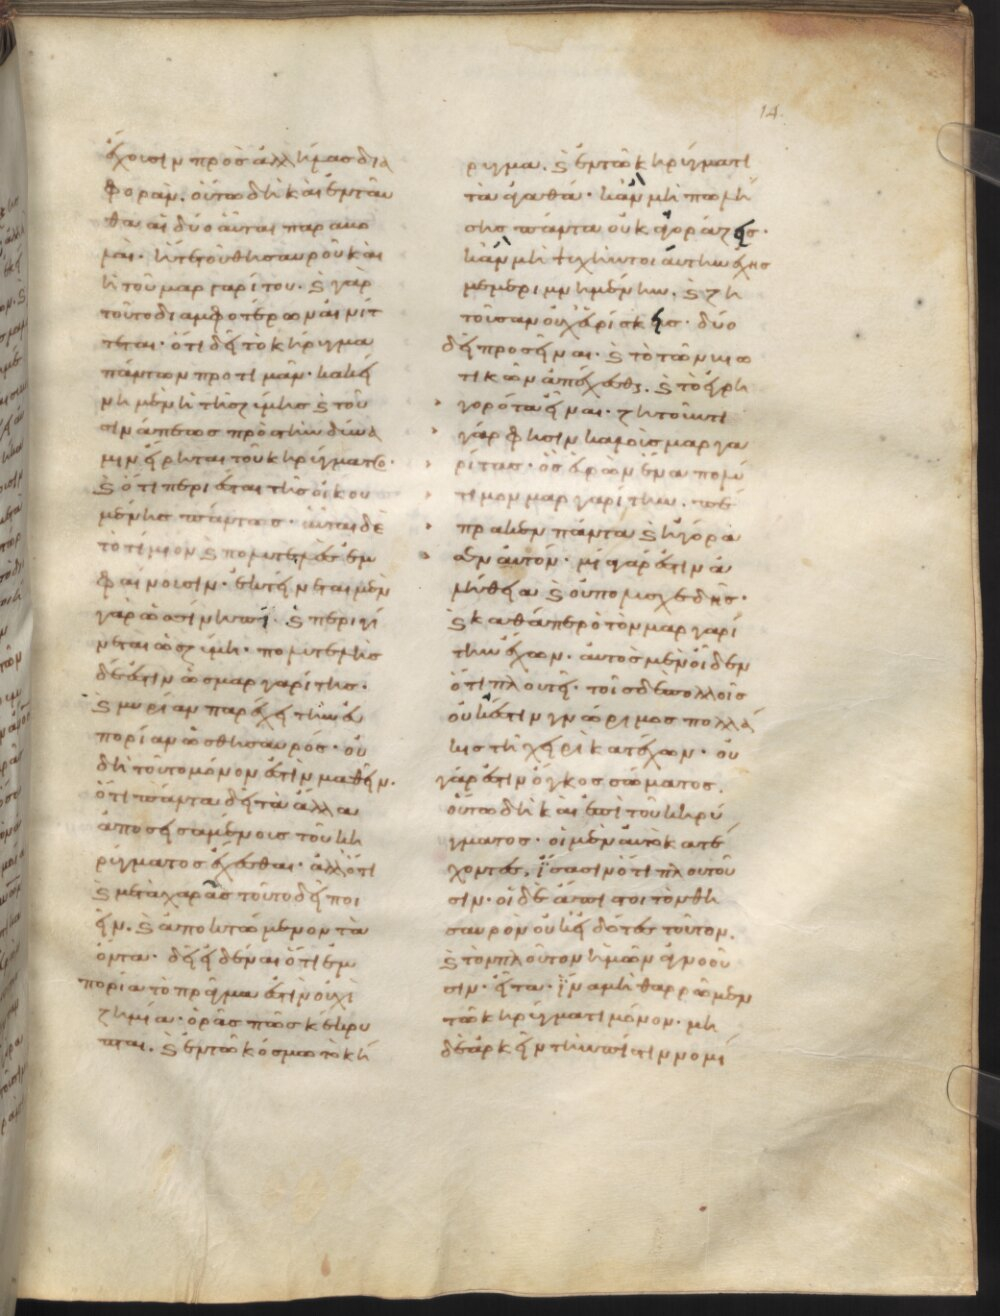 14
ἔχουσιν πρὸς ἀλλήλας δια
φοράν. οὕτω δὴ καὶ ἐνταῦ
θα αἱ δύο αὗται παραβο
λαί· ἥτε τοῦ θησαυροῦ καὶ
ἡ τοῦ μαργαρίτου. ϗ γὰρ
τοῦτο δι ἀμφοτέρων αἰνίτ
τεται· ὅτι δεῖ τὸ κήρυγμα
πάντων προτιμᾶν· κἀκεί
νη μὲν ἡ τῆς ζύμης ϗ τοῦ
σινάπεως πρὸς τὴν δύνα
μιν εἴρηται τοῦ κηρύγματος·
ϗ ὅτι περιέσται τῆς οἰκου
μένης πάντως. αὗται δὲ
τὸ τίμιον ϗ πολυτελὲς ἐμ
φαίνουσιν· ἐκτείνεται μὲν
γὰρ ὡς σίνηπι. ϗ περιγί
νεται ὡς ζύμη· πολυτελὴς
δέ ἐστιν ὡς μαργαρίτης.
ϗ μυρίαν παρέχει τὴν εὐ
πορίαν ὡς θησαυρός· οὐ
δὴ τοῦτο μόνον ἐστὶν μαθεῖν.
ὅτι πάντα δεῖ τὰ ἄλλα
ἀποσεισαμένους τοῦ κη
ρύγματος ἔχεσθαι· ἀλλ ὅτι
ϗ μετὰ χαρᾶς τοῦτο δεῖ ποι
εῖν. ϗ ἀποκτώμενον τὰ
ὄντα. δεῖ εἰδέναι ὅτι ἐμ
πορία τὸ πρᾶγμά ἐστιν οὐχὶ
ζημία· ὁρᾶς πῶς κέκρυ
πται. ϗ ἐν τῶ κόσμω τὸ κή
ρυγμα. ϗ ἐν τῶ κηρύγματι
τὰ ἀγαθά· κἂν μὴ πωλή
σης πάντα οὐκ ἀγοράζεις·
κἂν μὴ ψυχὴν τοιαύτην ἔχης
μεμεριμνημένην. ϗ ζη
τοῦσαν οὐχ εὑρίσκεις· δύο
δεῖ προσεῖναι· ϗ τὸ τῶν βιω
τικῶν ἀπέχεσθαι. ϗ τὸ ἐγρη
γορότα εἶναι· ζητοῦντι
γάρ φησιν καλοὺς μαργα
ρίτας. ὃς εὑρὼν ἕνα πολύ
τιμον μαργαρίτην. πέ
πρακεν πάντα ϗ ἠγόρα
σεν αὐτόν· μία γάρ ἐστιν ἀ
λήθεια ϗ οὐ πολυσχεδής·
ϗ καθάπερ ὁ τὸν μαργαρί
την ἔχων. αὐτὸς μὲν οἶδεν
ὅτι πλουτεῖ. τοῖς δὲ πολλοῖς
οὐκ ἔστιν γνώριμος πολλά
κις τῆ χειρὶ κατέχων· οὐ
γάρ ἐστιν ὄγκος σώματος.
οὕτω δὴ καὶ ἐπὶ τοῦ κηρύ
γματος· οἱ μὲν αὐτὸ κατέ
χοντες. ἴσασιν ὅτι πλουτοῦ
σιν· οἱ δὲ ἄπιστοι τὸν θη
σαυρὸν οὐκ εἰδότες τοῦτον.
ϗ τὸν πλοῦτον ἡμῶν ἀγνοοῦ
σιν· εἶτα· ἵνα μὴ θαρρῶμεν
τῶ κηρύγματι μόνον· μὴ
δὲ ἀρκεῖν τὴν πίστιν νομί